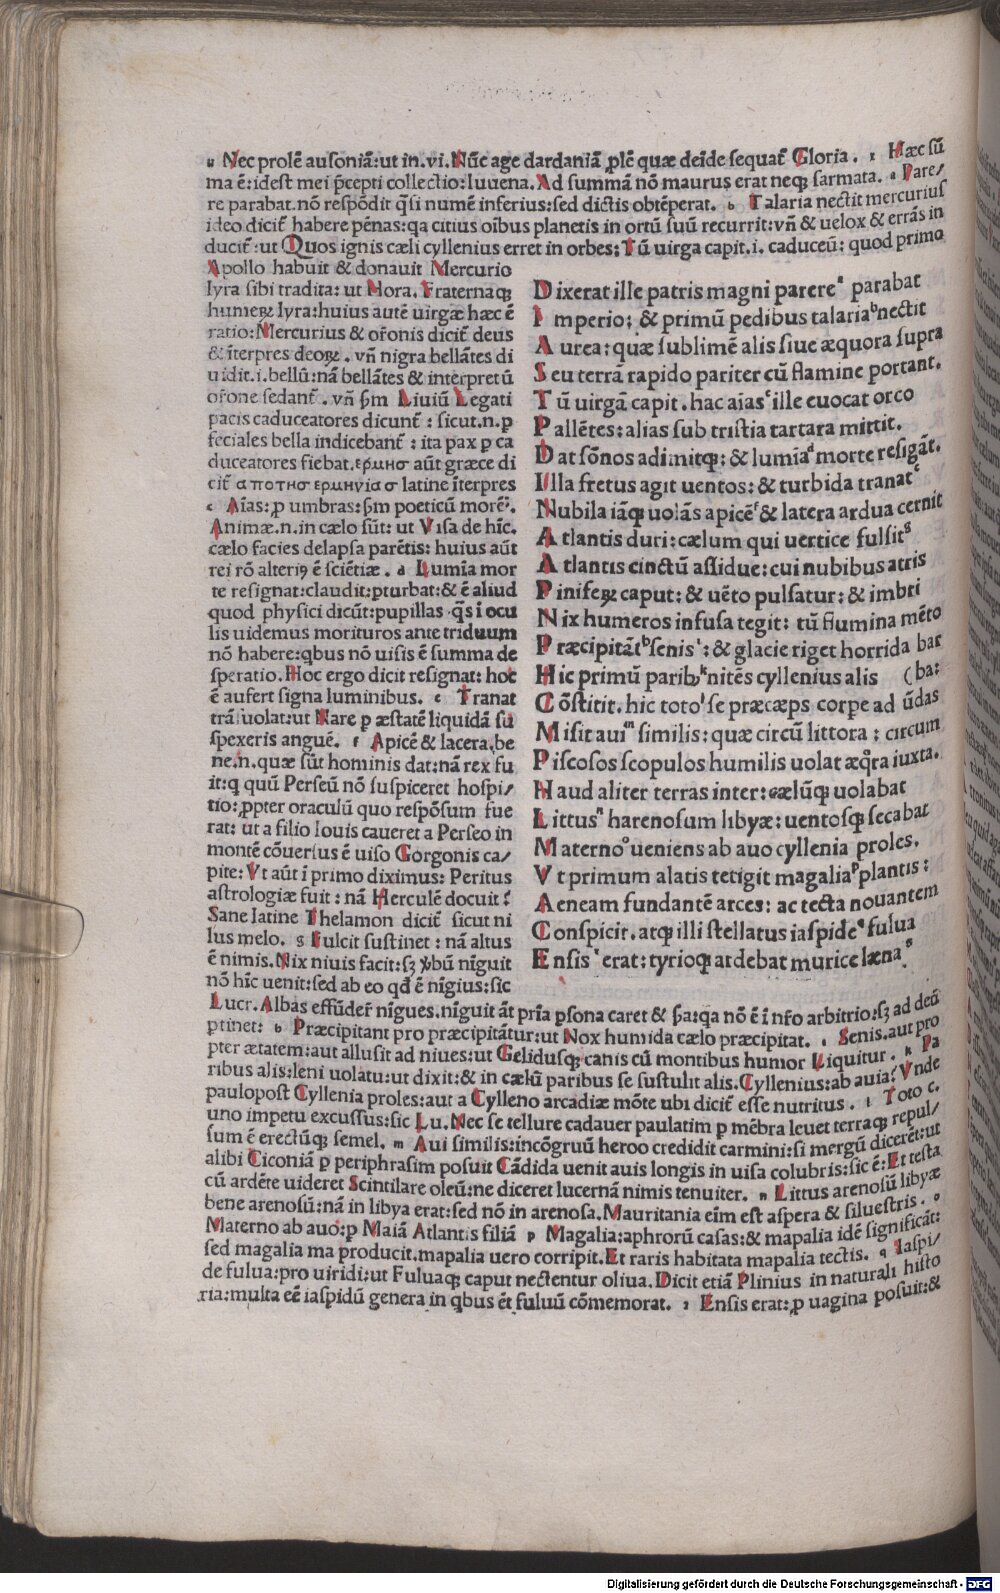 u Nec prolē ausoniā: ut in .vi. Nūc age dardaniā ꝓlē quæ deīde sequat̄ Gloria . x Hæc sū
ma ē: idest mei p̄cepti collectio: Iuuena. Ad summā nō maurus erat neqꝫ sarmata. a Pare/
re parabat. nō respōdit q̄si numē inferius: sed dictis obtēperat. b Talaria nectit mercurius
ideo dicit̄ habere pēnas: qa citius oībus planetis in ortū suū recurrit: vn̄ & uelox & errās in
ducit̄: ut Quos ignis cæli cyllenius erret in orbes: Tū uirga capit .i. caduceū: quod primo
Apollo habuit & donauit Mercurio
lyra sibi tradita: ut Hora. Fraternaqꝫ
humeꝝ lyra: huius autē uirgæ hæc ē
ratio: Mercurius & or̄onis dicit̄ deus
& īterpres deoꝝ . vn̄ nigra bellātes di
uidit .i. bellū: nā bellātes & interpretū
or̄one sedant̄ . vn̄ ẜm Liuiū Legati
pacis caduceatores dicunt̄ : sicut .n. ꝑ
feciales bella indicebant̄ : ita pax ꝑ ca
duceatores fiebat. ερμησ aūt græce di
cit̄ α ποτησ ερμηνίασ latine īterpres
c Aīas: ꝑ umbras: ẜm poeticū morē.
Animæ .n. in cælo sūt: ut Visa de hīc.
cælo facies delapsa parētis: huius aūt
rei rō alteriꝰ ē sciētiæ . d Lumīa mor
te resignat: claudit: pturbat: & ē aliud
quod physici dicūt: pupillas q̄s i ocu
lis uidemus morituros ante triduum
nō habere: qbus nō uisis ē summa de
speratio. Hoc ergo dicit resignat: hoc
ē aufert signa luminibus. e Tranat
trāuolat: ut Nare ꝑ æstatē liquidā su
spexeris anguē. f Apicē & lacera. be
ne .n. quæ sūt hominis dat: nā rex fu
it: q quū Perseū nō suspiceret hospi/
tio: ꝓpter oraculū quo respōsum fue
rat: ut a filio Iouis caueret a Perseo in
montē cōuersus ē uiso Gorgonis ca/
pite: Vt aūt ī primo diximus: Peritus
astrologiæ fuit: nā Herculē docuit:
Sane latine Thelamon dicit̄ sicut ni
lus melo. g Fulcit sustinet : nā altus
ē nimis. Nix niuis facit: sꝫ ỽbū nīguit
nō hīc uenit: sed ab eo qd̄ ē nīgius: sic
D ixerat ille patris magni parereª parabat
I mperio: & primū pedibus talariaᵇ nectit
A urea: quæ sublimē alis siue æquora supra
S eu terrā rapido pariter cū flamine portant.
T ū uirgā capit. hac aīasᶜ ille euocat orco
P allētes: alias sub tristia tartara mittit.
D at sōnos adimitqꝫ: & lumīaᵈ morte resigāt.
I lla fretus agit uentos: & turbida tranatᵉ
N ubila iāqꝫ uolās apicēᶠ & latera ardua cernit
A tlantis duri: cælum qui uertice fulsitᵍ
A tlantis cinctū assidue: cui nubibus atris
P inifeꝝ caput: & uēto pulsatur: & imbri
N ix humeros infusa tegit: tū flumina mēto
P ræcipitātʰ senisⁱ: & glacie riget horrida bar
H ic primū paribꝰᵏ nitēs cyllenius alis (ba:
C ōstitit. hic totoˡ se præcæps corpe ad ūdas
M isit auiᵐ similis: quæ circū littora : circum
P iscosos scopulos humilis uolat æqra iuxta.
H aud aliter terras inter: cælūqꝫ uolabat
L ittusⁿ harenosum libyæ: uentosqꝫ secabat
M aternoᵒ ueniens ab auo cyllenia proles.
V t primum alatis tetigit magaliaᵖ plantis:
A eneam fundantē arces: ac tecta nouantem
C onspicit. atqꝫ illi stellatus iaspideᑫ fulua
E nsisʳ erat: tyrioqꝫ ardebat murice lænaˢ
Lucr. Albas effūder̄ nigues. nīguit āt pr̄ia ꝑsona caret & ẜa: qa nō ē ī nr̄o arbitrio: sꝫ ad deū
ptinet: h Præcipitant pro præcipitātur: ut Nox humida cælo præcipitat. i Senis. aut pro
pter ætatem: aut allusit ad niues: ut Gelidusqꝫ canis cū montibus humor Liquitur. k Pa
ribus alis: leni uolatu: ut dixit: & in cælū paribus se sustulit alis. Cyllenius: ab auia: Vnde
paulopost Cyllenia proles: aut a Cylleno arcadiæ mōte ubi dicit̄ esse nutritus . l Toto c.
uno impetu excussus: sic Lu. Nec se tellure cadauer paulatim ꝑ mēbra leuet terraqꝫ repul/
sum ē erectūqꝫ semel. m Aui similis: incōgruū heroo credidit carmini: si mergū dicerēt: ut
alibi Ciconiā ꝑ periphrasim posuit Cādida uenit auis longis in uisa colubris: sic ē: Et testa
cū ardēte uideret Scintilare oleū: ne diceret lucernā nimis tenuiter. n Littus arenosū libyæ
bene arenosū: nā in libya erat: sed nō in arenosa. Mauritania eīm est aspera & siluestris. o
Materno ab auo: ꝑ Maiā Atlantis filiā p Magalia: aphrorū casas: & mapalia idē significāt:
sed magalia ma producit. mapalia uero corripit. Et raris habitata mapalia tectis. q Iaspi/
de fulua: pro uiridi: ut Fuluaqꝫ caput nectentur oliua. Dicit etiā Plinius in naturali histo
ria: multa eē iaspidū genera in qbus ēt fuluū cōmemorat. r Ensis erat: ꝑ uagina posuit: &
Digitalisierung gefördert durch die Deutsche Forschungsgemeinschaft - DFG